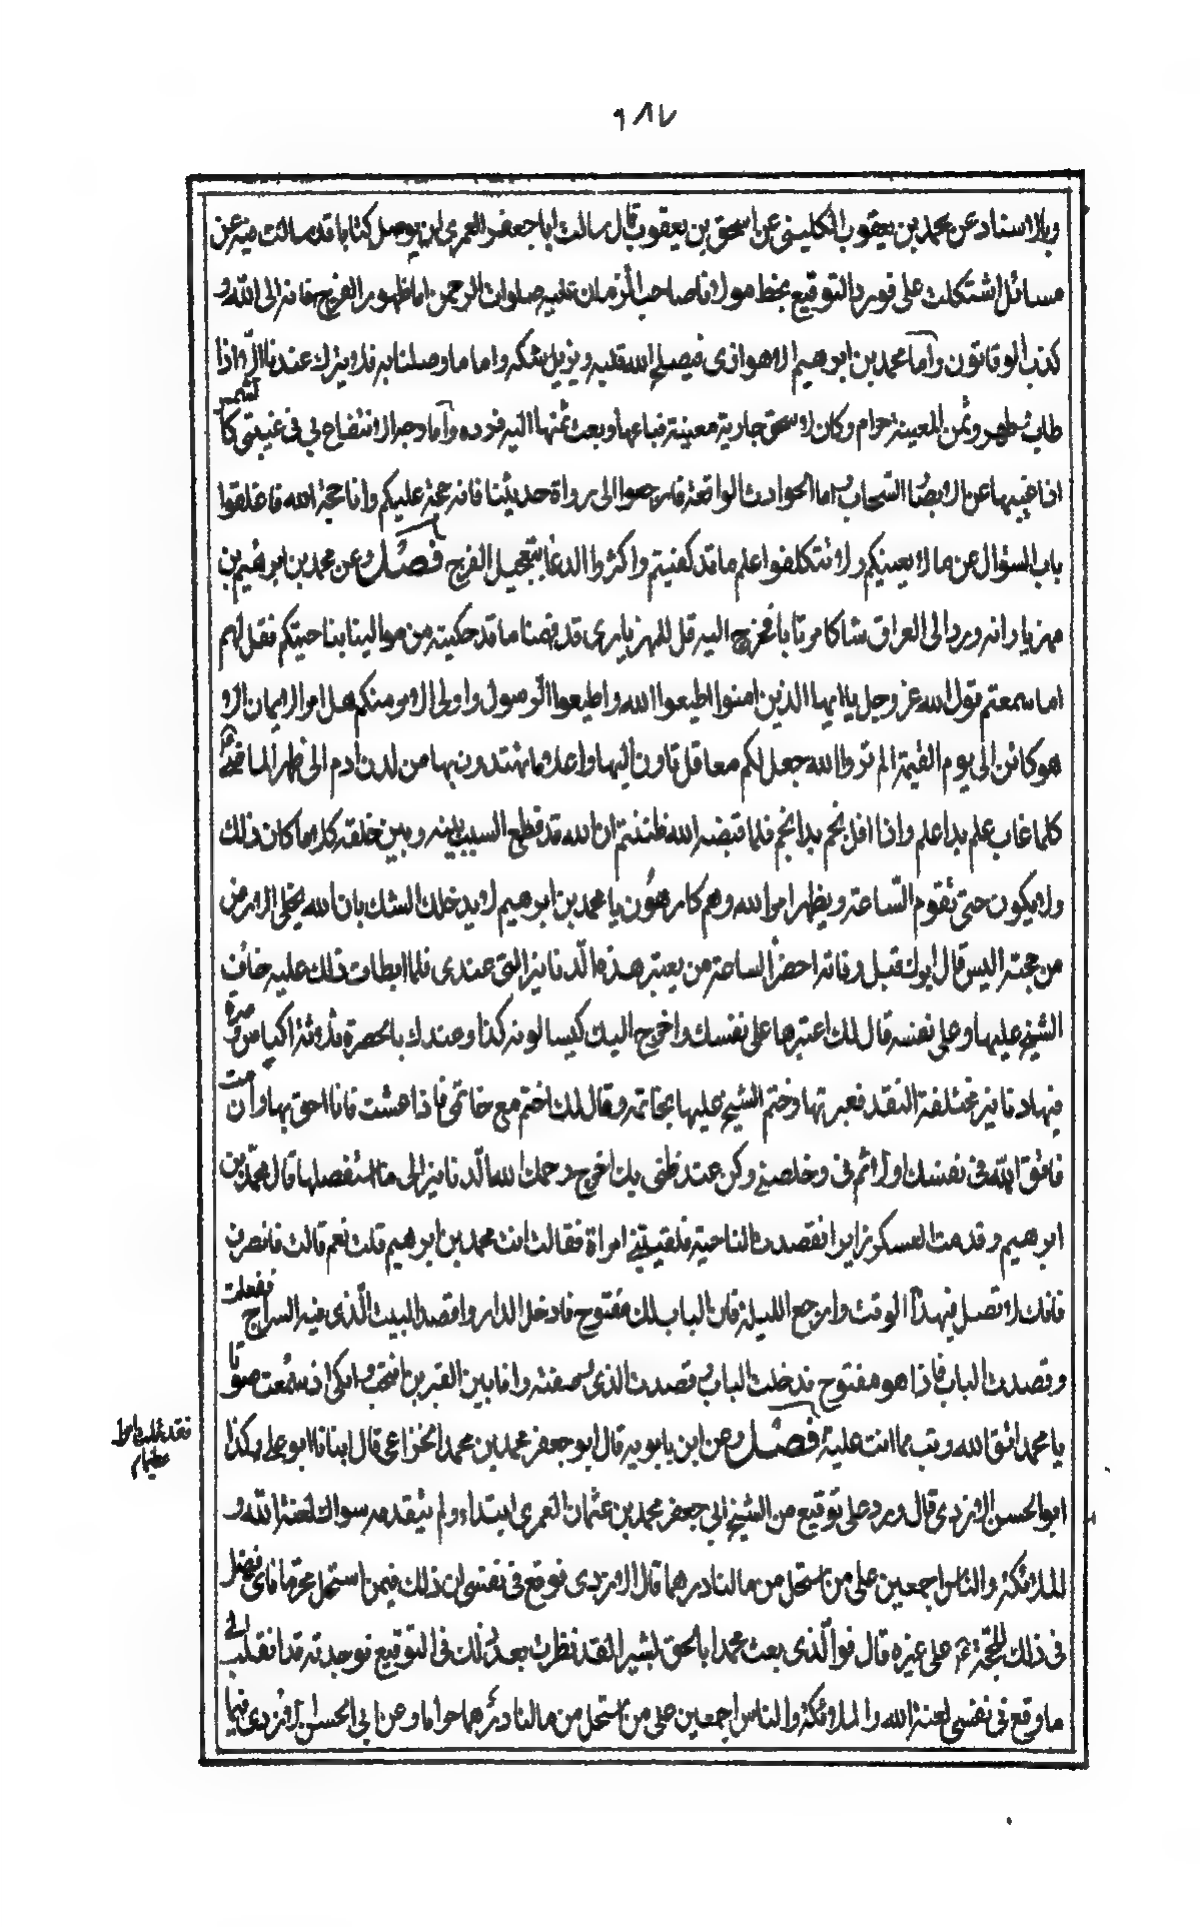 ٩٨٧
وبالاسناد عن محمد بن يعقوب الكليني عن اسحق بن يعقوب قال سالت ابا جعفر العمري ان يوصل كتابا قد سالت فيه عن
مسائل اشتكلت علي فورد التوقيع بخط مولانا صاحب الزمان عليه صلوات الرحمن اما ظهور الفرج فانه الى الله و
كذب الوقاتون واما محمد بن ابرهيم الاهوازي فيصلح الله قلبه ويزيل شكه واما ما وصلنا به فلا يترك عندنا الا اذا
طاب وطهر وثمن المغنية حرام وكان لاسحق جارية مغنية فباعها وبعث ثمنها اليه فرده واما وجه الانتفاع بي في غيبتي كا
لشمس
اذا غيبها عن الابصار السحاب اما الحوادث الواقعة فارجعوا الى رواة حديثنا فانه حجة عليكم وانا حجة الله فاغلقوا
باب السؤال عن ما لا يعنيكم ولا تتكلفوا علم ما قد كفيتم واكثروا الدعا بتعجيل الفرج فصل وعن محمد بن ابرهيم بن
مهزيار انه ورد الى العراق شاكا مرتابا فخرج اليه قل للمهزياري قد فهمنا ما قد حكيته من موالينا بناحيتكم فقل لهم
اما سمعتم قول الله عز وجل يا ايها الذين امنوا اطيعوا الله واطيعوا الرسول واولى الامر منكم هل امر الا بما
هو كائن الى يوم القيمة الم تروا الله جعل لكم معاقل تاون اليها واعلاما تهتدون بها من لدن ادم الى ظهر الماضي
كلما غاب علم بدا علم واذا افل نجم بدا نجم فلما قبضه الله ظننتم ان الله قد قطع السبب بينه وبين خلقه كلا ما كان ذلك
ولا يكون حتى تقوم الساعة ويظهر امر الله وهم كارهون يا محمد بن ابرهيم لا يدخلك الشك بان الله يخلي الارض
من حجته اليس قال ابوك قبل وفاته احضر الساعة من يعتبر هذه الدنانير التي عندي فلما ابطات ذلك عليه خاف
الشيخ عليها وعلى نفسه قال لك اعتبرها على نفسك واخرج اليك كيسا لونه كذا وعندك بالحضرة ثلاثة اكياس و
صرة
فيها دنانير مختلفة النقد فعبرتها وختم الشيخ عليها بخاتمه وقال لك اختم مع خاتمي فاذا عشت فانا احق بها وان
مت
فاتق الله في نفسك اولا ثم في وخلصني وكن عند ظني بك اخرج رحمك الله الدنانير الى ما استفصلها قال محمد بن
ابرهيم وقدمت العسكر زايرا فقصدت الناحية فلقيتني امراة فقالت انت محمد بن ابرهيم قلت نعم قالت فانصرف
فانك لا تصل فيهذا الوقت وارجع الليلة فان الباب لك مفتوح فادخل الدار واقصد البيت الذي فيه السراج
ففعلت
وقصدت الباب فاذا هو مفتوح فدخلت الباب وقصدت الذي وصفته وانا بين القبرين انتحب وابكى اذ سمعت صوتا
يا محمد اتق الله وتب مما انت عليه فصل وعن ابن بابويه قال ابو جعفر محمد بن محمد الخزاعي قال ابنانا ابو علي وكذا
ابو الحسن الازدي قال ورد علي توقيع من الشيخ ابي جعفر محمد بن عثمان العمري ابتداء ولم يتقدمه سواك لعنة الله و
الملائكة والناس اجمعين على من استحل من مالنا درهما قال الازدي فوقع في نفسي ان ذلك فيمن استحل محرما فاى فضل
في ذلك للحجة على غيره قال فوالذي بعث محمدا بالحق بشيرا لقد نظرت بعد ذلك في التوقيع فوجدته قد انقلب الى
ما وقع في نفسي لعنة الله والملائكة والناس اجمعين على من استحل من مالنا درهما حراما وعن ابي الحسن الازدي فيما